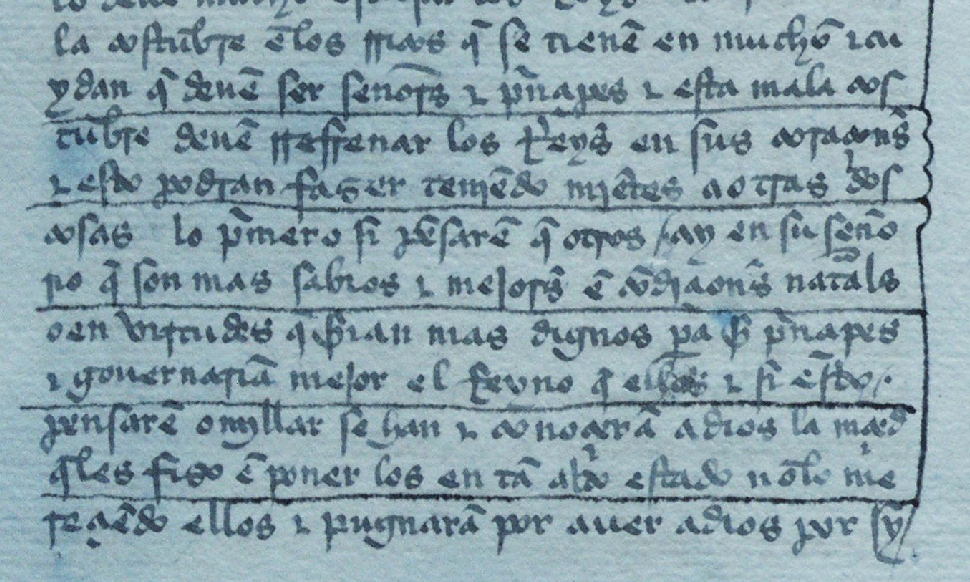 la costũbre ẽ los rricos q̃ se tienẽ en mucho ⁊ cu
ydan q̃ deuẽ ser señors̃ ⁊ pñçipes ⁊ esta mala cos
tũbre deuẽ rrefrenar los Reys̃ en sus coraçons̃
⁊ esto podran faser teniẽdo miẽtes a otras dos
cosas lo p̃mero si pẽsarẽ q̃ otros ay en su seño
rio q̃ son mas sabios ⁊ mejors̃ ẽ cõdiçions̃ nat̃als
o en virtudes q̃ s̃rian mas dignos pa s̃ pñçipes
⁊ gouernariã mejor el Reyno q̃ ellos ⁊ si ẽ esto
pensarẽ omyllar se han ⁊ conoçerã a dios la mrçed
q̃ les fiso ẽ poner los en tã alto estado nõ lo me
resçiẽdo ellos ⁊ pugnarã por auer a dios por sy